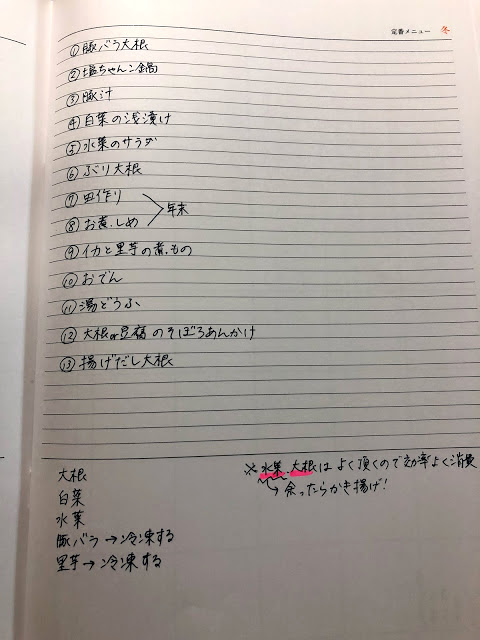 定番メニュー 冬
①豚バラ大根
②塩ちゃんこ鍋
③豚汁
④白菜の浅漬け
⑤水菜のサラダ
⑥ぶり大根
⑦田作り
年末
⑧お煮しめ
⑨イカと里芋の煮もの
⑩おでん
⑪湯どうふ
⑫大根or豆腐のそぼろあんかけ
⑬揚げだし大根
大根
白菜
水菜
豚バラ→冷凍する
里芋→冷凍する
※水菜 大根はよく頂くので効率よく消費
→余ったらかき揚げ!